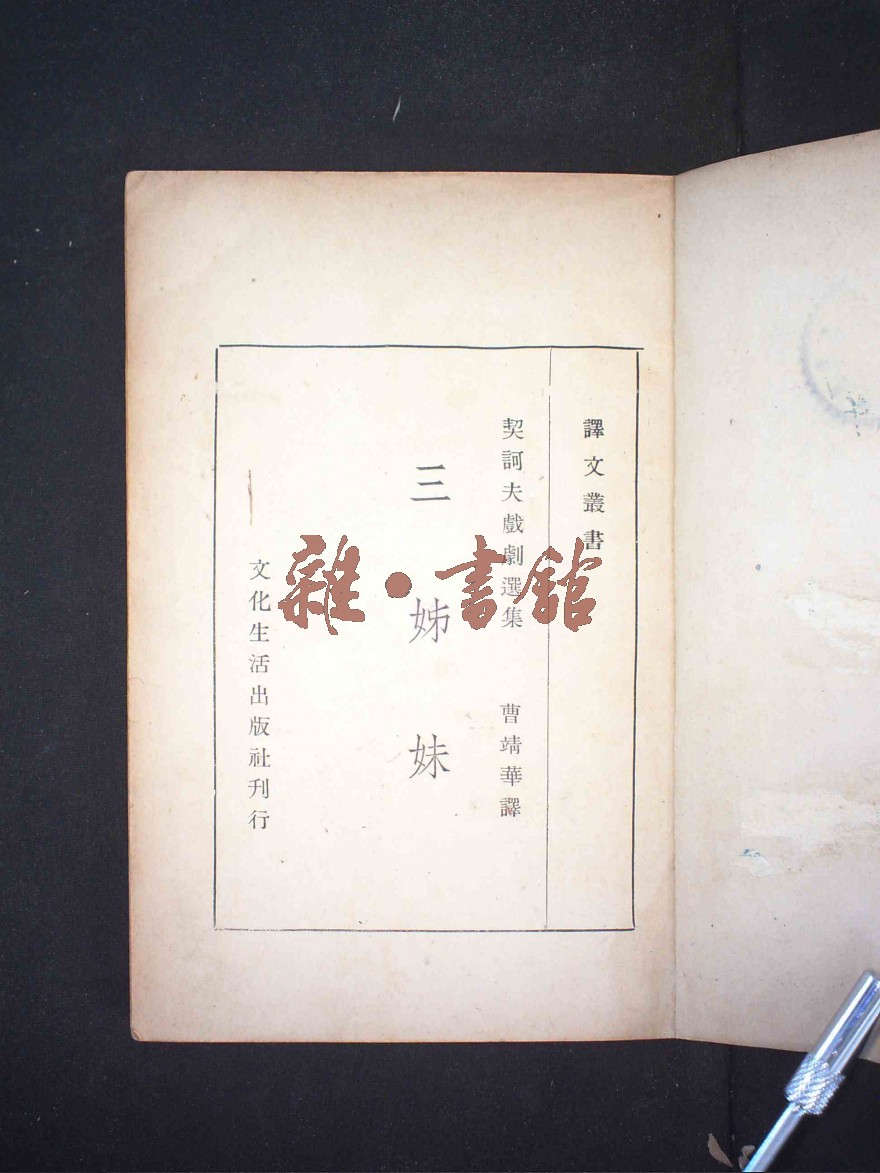 譯文叢書
契訶夫戲劇選集 曹靖華譯
三姊妹
文化生活出版社刊行
雜·書館